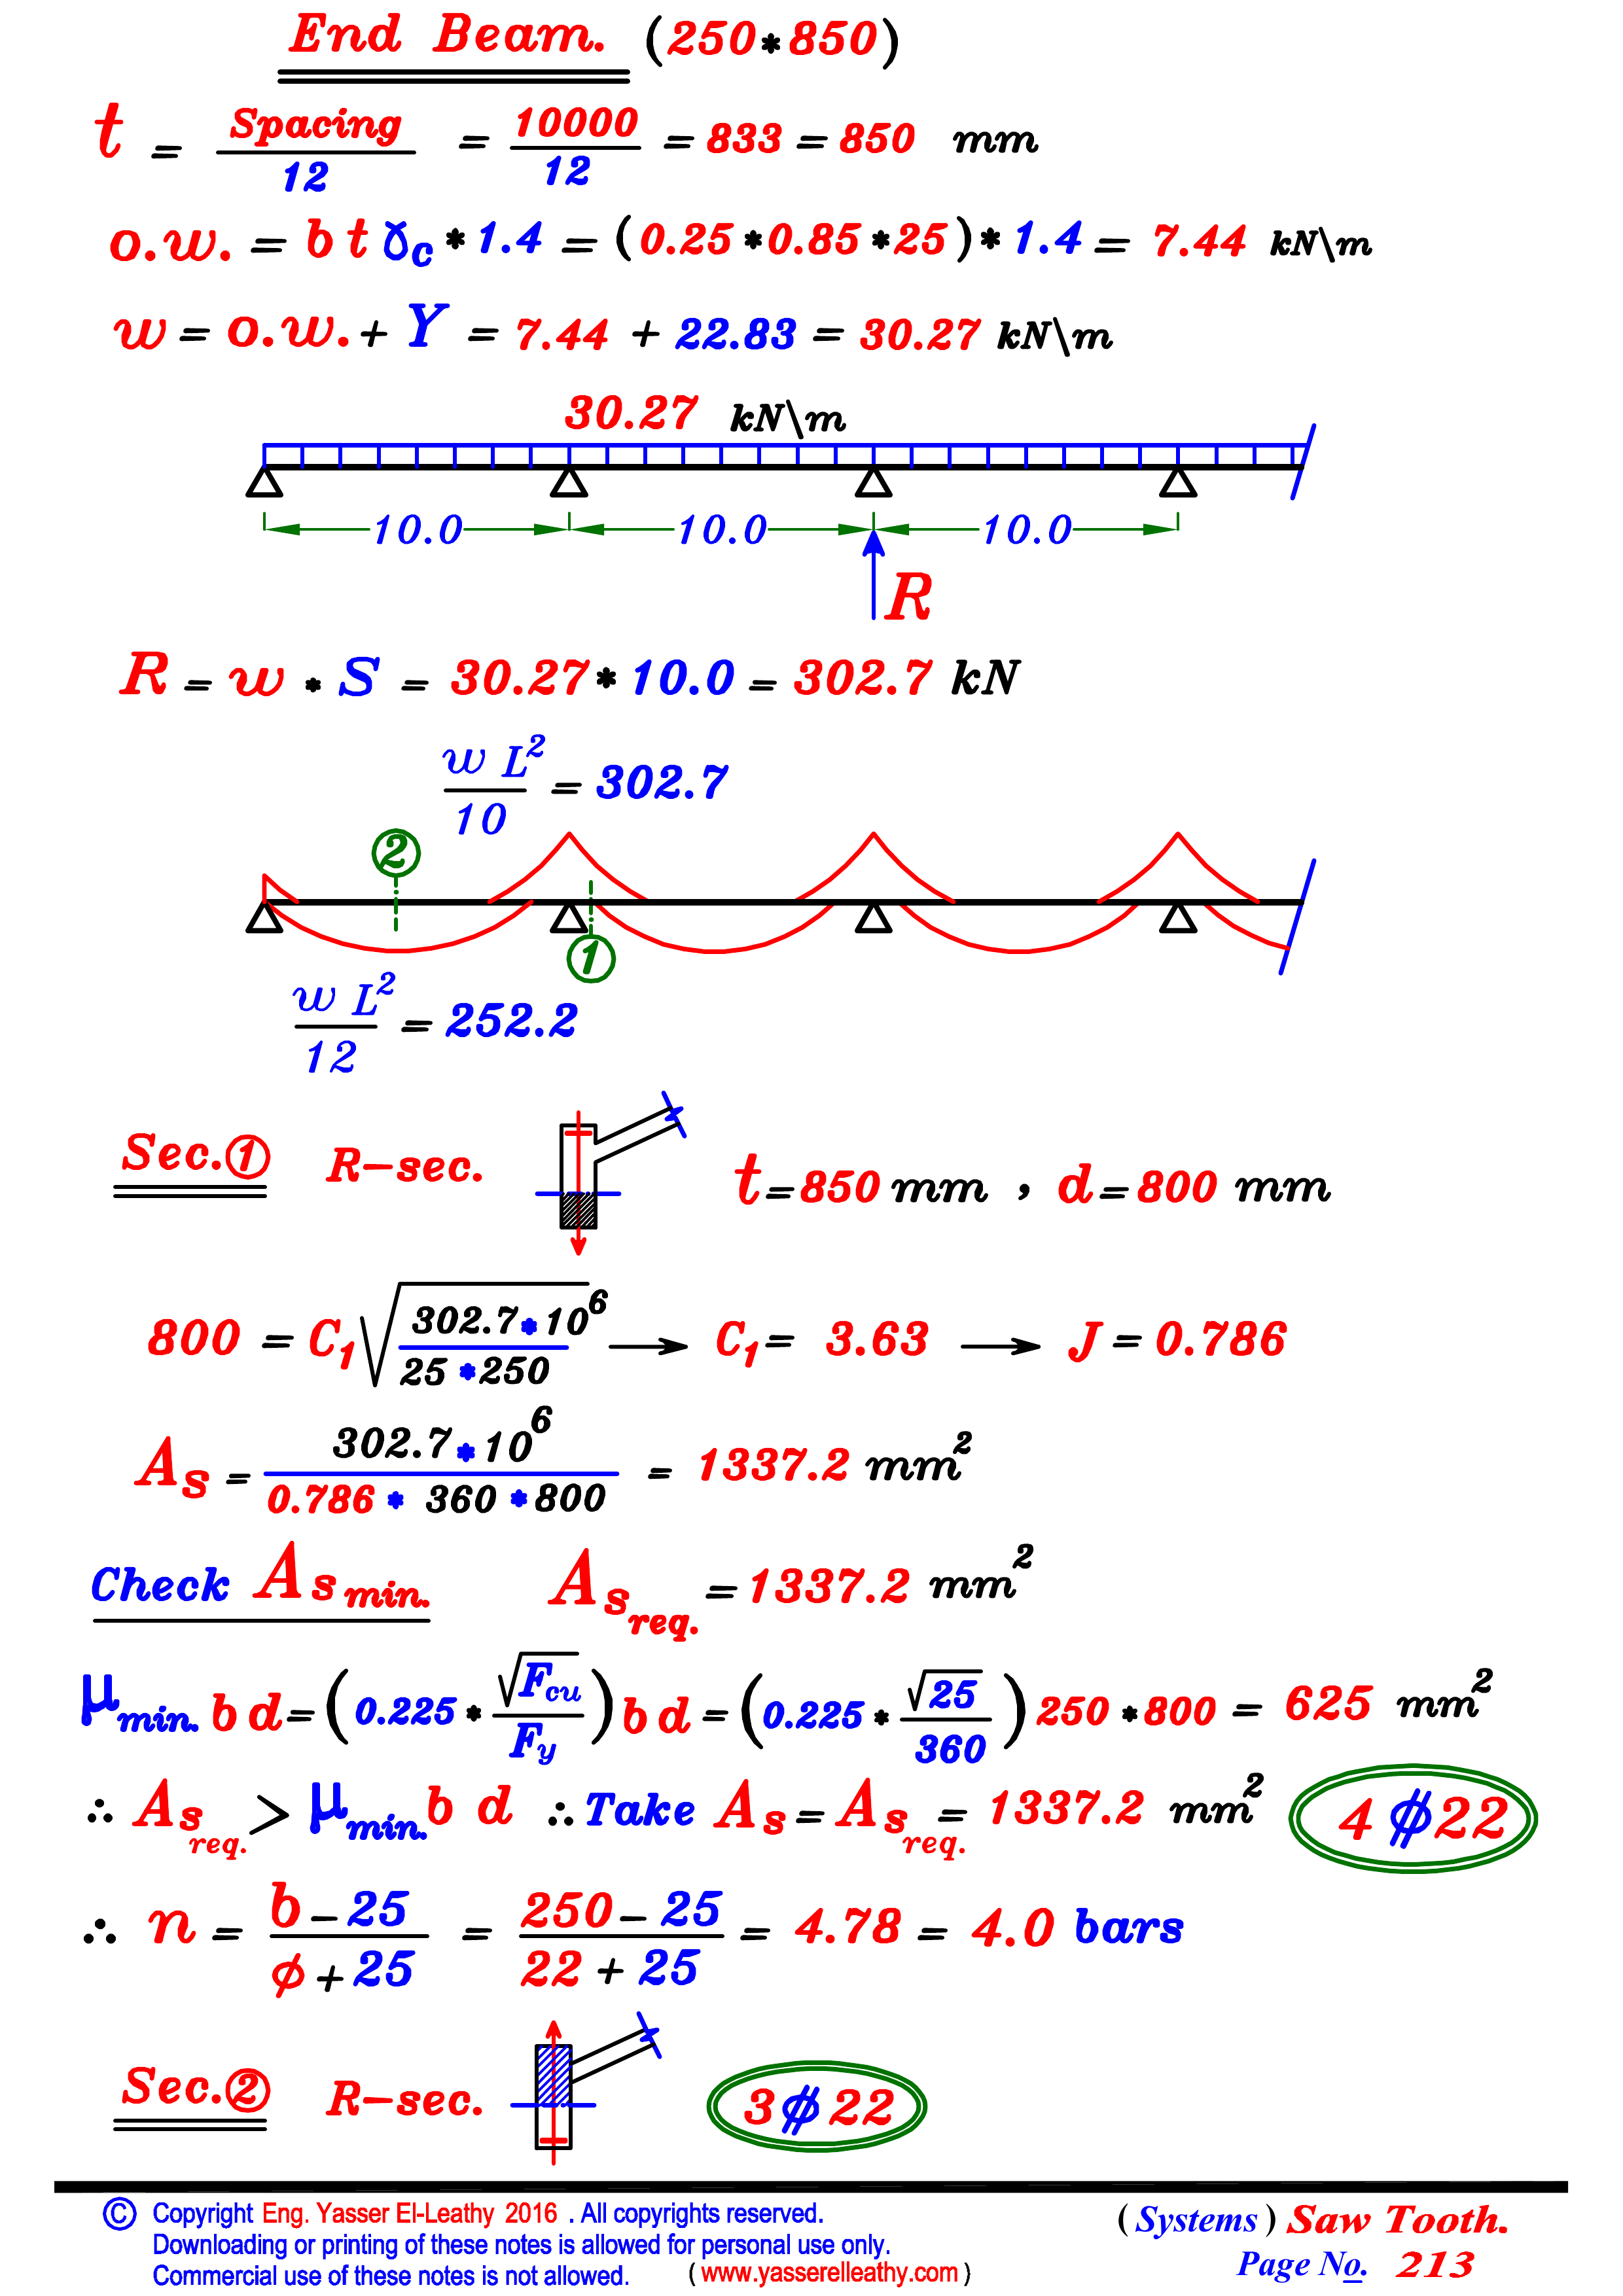 End Beam. (250*850)
t = Spacing / 12 = 10000 / 12 = 833 = 850 mm
o.w. = b t γc * 1.4 = (0.25 * 0.85 * 25) * 1.4 = 7.44 kN\m
w = o.w. + Y = 7.44 + 22.83 = 30.27 kN\m
30.27 kN\m
10.0 10.0 10.0
R
R = w * S = 30.27 * 10.0 = 302.7 kN
w L² / 10 = 302.7
2
1
w L² / 12 = 252.2
Sec. 1 R-sec. t = 850 mm , d = 800 mm
800 = C1 √(302.7 * 10⁶ / 25 * 250) → C1 = 3.63 → J = 0.786
As = 302.7 * 10⁶ / 0.786 * 360 * 800 = 1337.2 mm²
Check As min. As req. = 1337.2 mm²
μ min. b d = (0.225 * √Fcu / Fy) b d = (0.225 * √25 / 360) 250 * 800 = 625 mm²
∴ As req. > μ min. b d ∴ Take As = As req. = 1337.2 mm² 4 ⌀ 22
∴ n = b - 25 / ϕ + 25 = 250 - 25 / 22 + 25 = 4.78 = 4.0 bars
Sec. 2 R-sec. 3 ⌀ 22
© Copyright Eng. Yasser El-Leathy 2016 . All copyrights reserved. (Systems) Saw Tooth.
Downloading or printing of these notes is allowed for personal use only.
Commercial use of these notes is not allowed. (www.yasserelleathy.com) Page No. 213